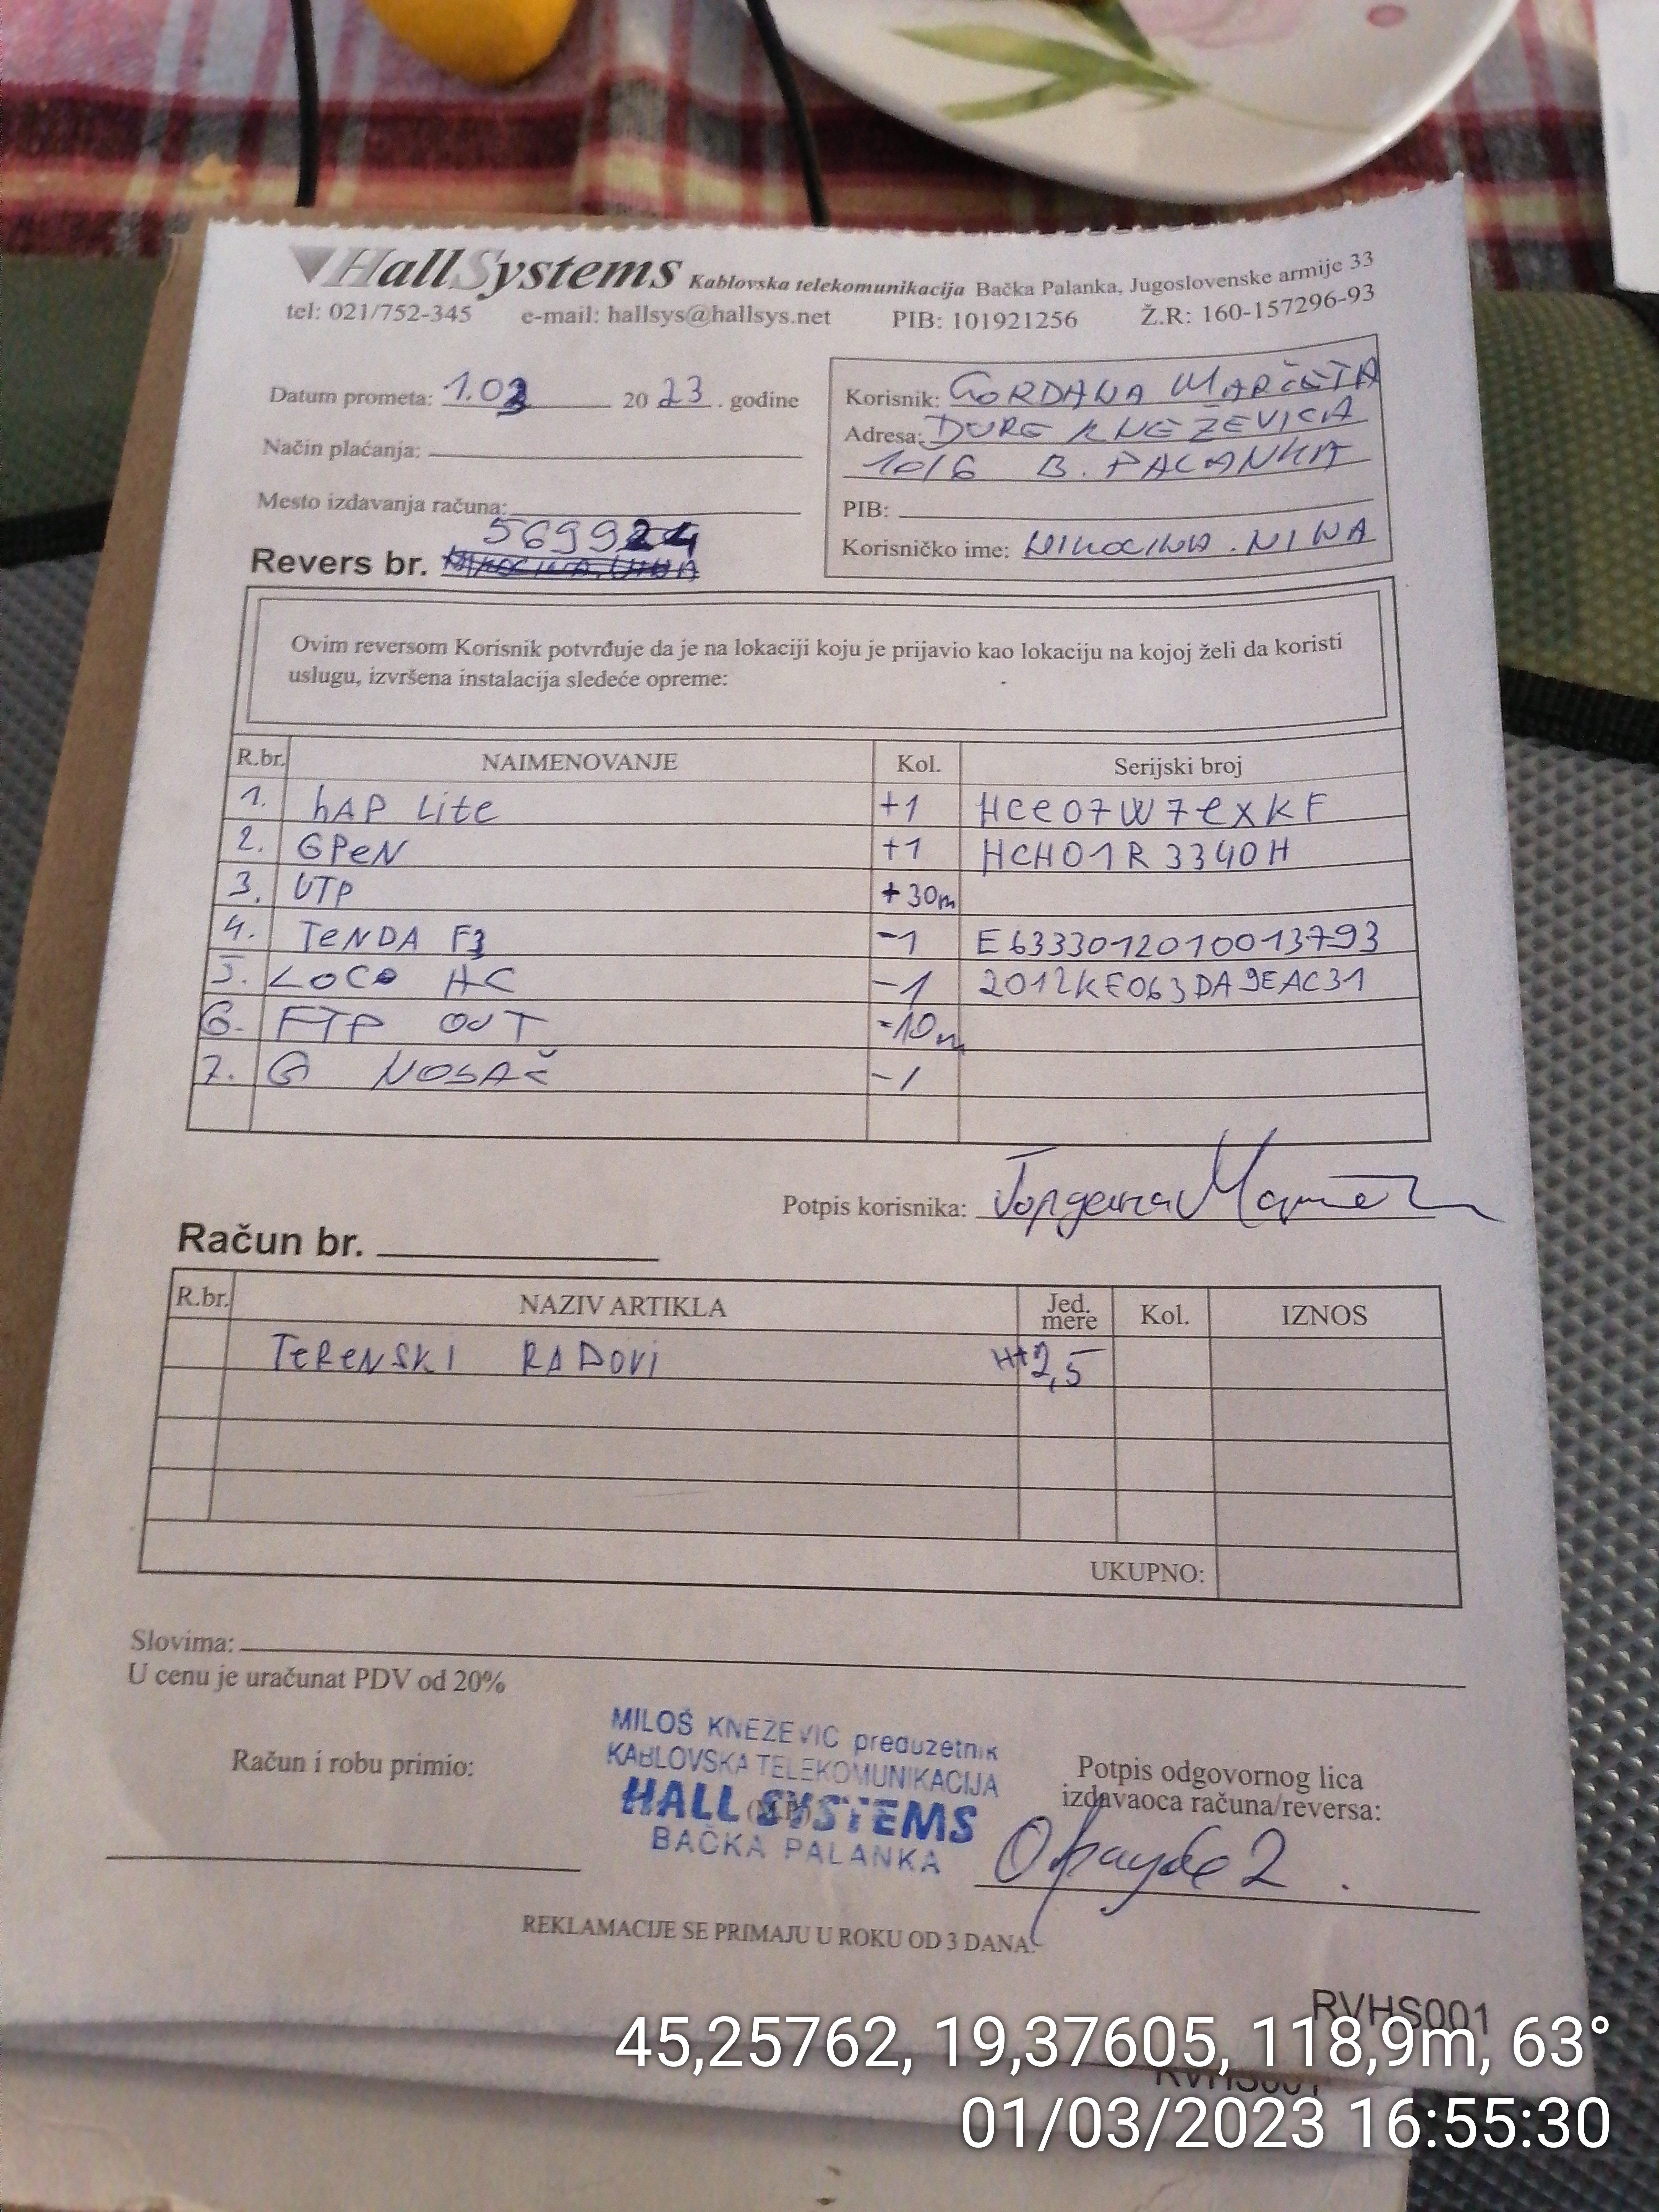 HallSystems Kablovska telekomunikacija Bačka Palanka, Jugoslovenske armije 33
tel: 021/752-345 e-mail: hallsys@hallsys.net PIB: 101921256 Ž.R: 160-157296-93
Datum prometa: 1.03 2023. godine
Način plaćanja:
Mesto izdavanja računa:
Revers br. 569924
Korisnik: GORDANA MARČETA
Adresa: ĐURE KNEŽEVIĆA
10/6 B. PALANKA
PIB:
Korisničko ime: NIKOLINA.NINA
Ovim reversom Korisnik potvrđuje da je na lokaciji koju je prijavio kao lokaciju na kojoj želi da koristi
uslugu, izvršena instalacija sledeće opreme:
R.br. NAIMENOVANJE Kol. Serijski broj
1. hAP Lite +1 HCe07W7exKF
2. GPeN +1 HCH01R3340H
3. UTP +30m
4. TeNDA F3 -1 E6333012010013793
5. LOCO AC -1 2012KF063DA9EAC31
6. FTP OUT -10m
7. G NOSAČ -1
Potpis korisnika: Гордана
Račun br.
R.br. NAZIV ARTIKLA Jed. mere Kol. IZNOS
TeReNSKI RADOVI H+2,5
UKUPNO:
Slovima:
U cenu je uračunat PDV od 20%
Račun i robu primio:
MILOŠ KNEŽEVIĆ preduzetnik
KABLOVSKA TELEKOMUNIKACIJA
HALL SYSTEMS
BAČKA PALANKA
Potpis odgovornog lica
izdavaoca računa/reversa:
REKLAMACIJE SE PRIMAJU U ROKU OD 3 DANA.
RVHS001
RVHS001
45,25762, 19,37605, 118,9m, 63°
01/03/2023 16:55:30